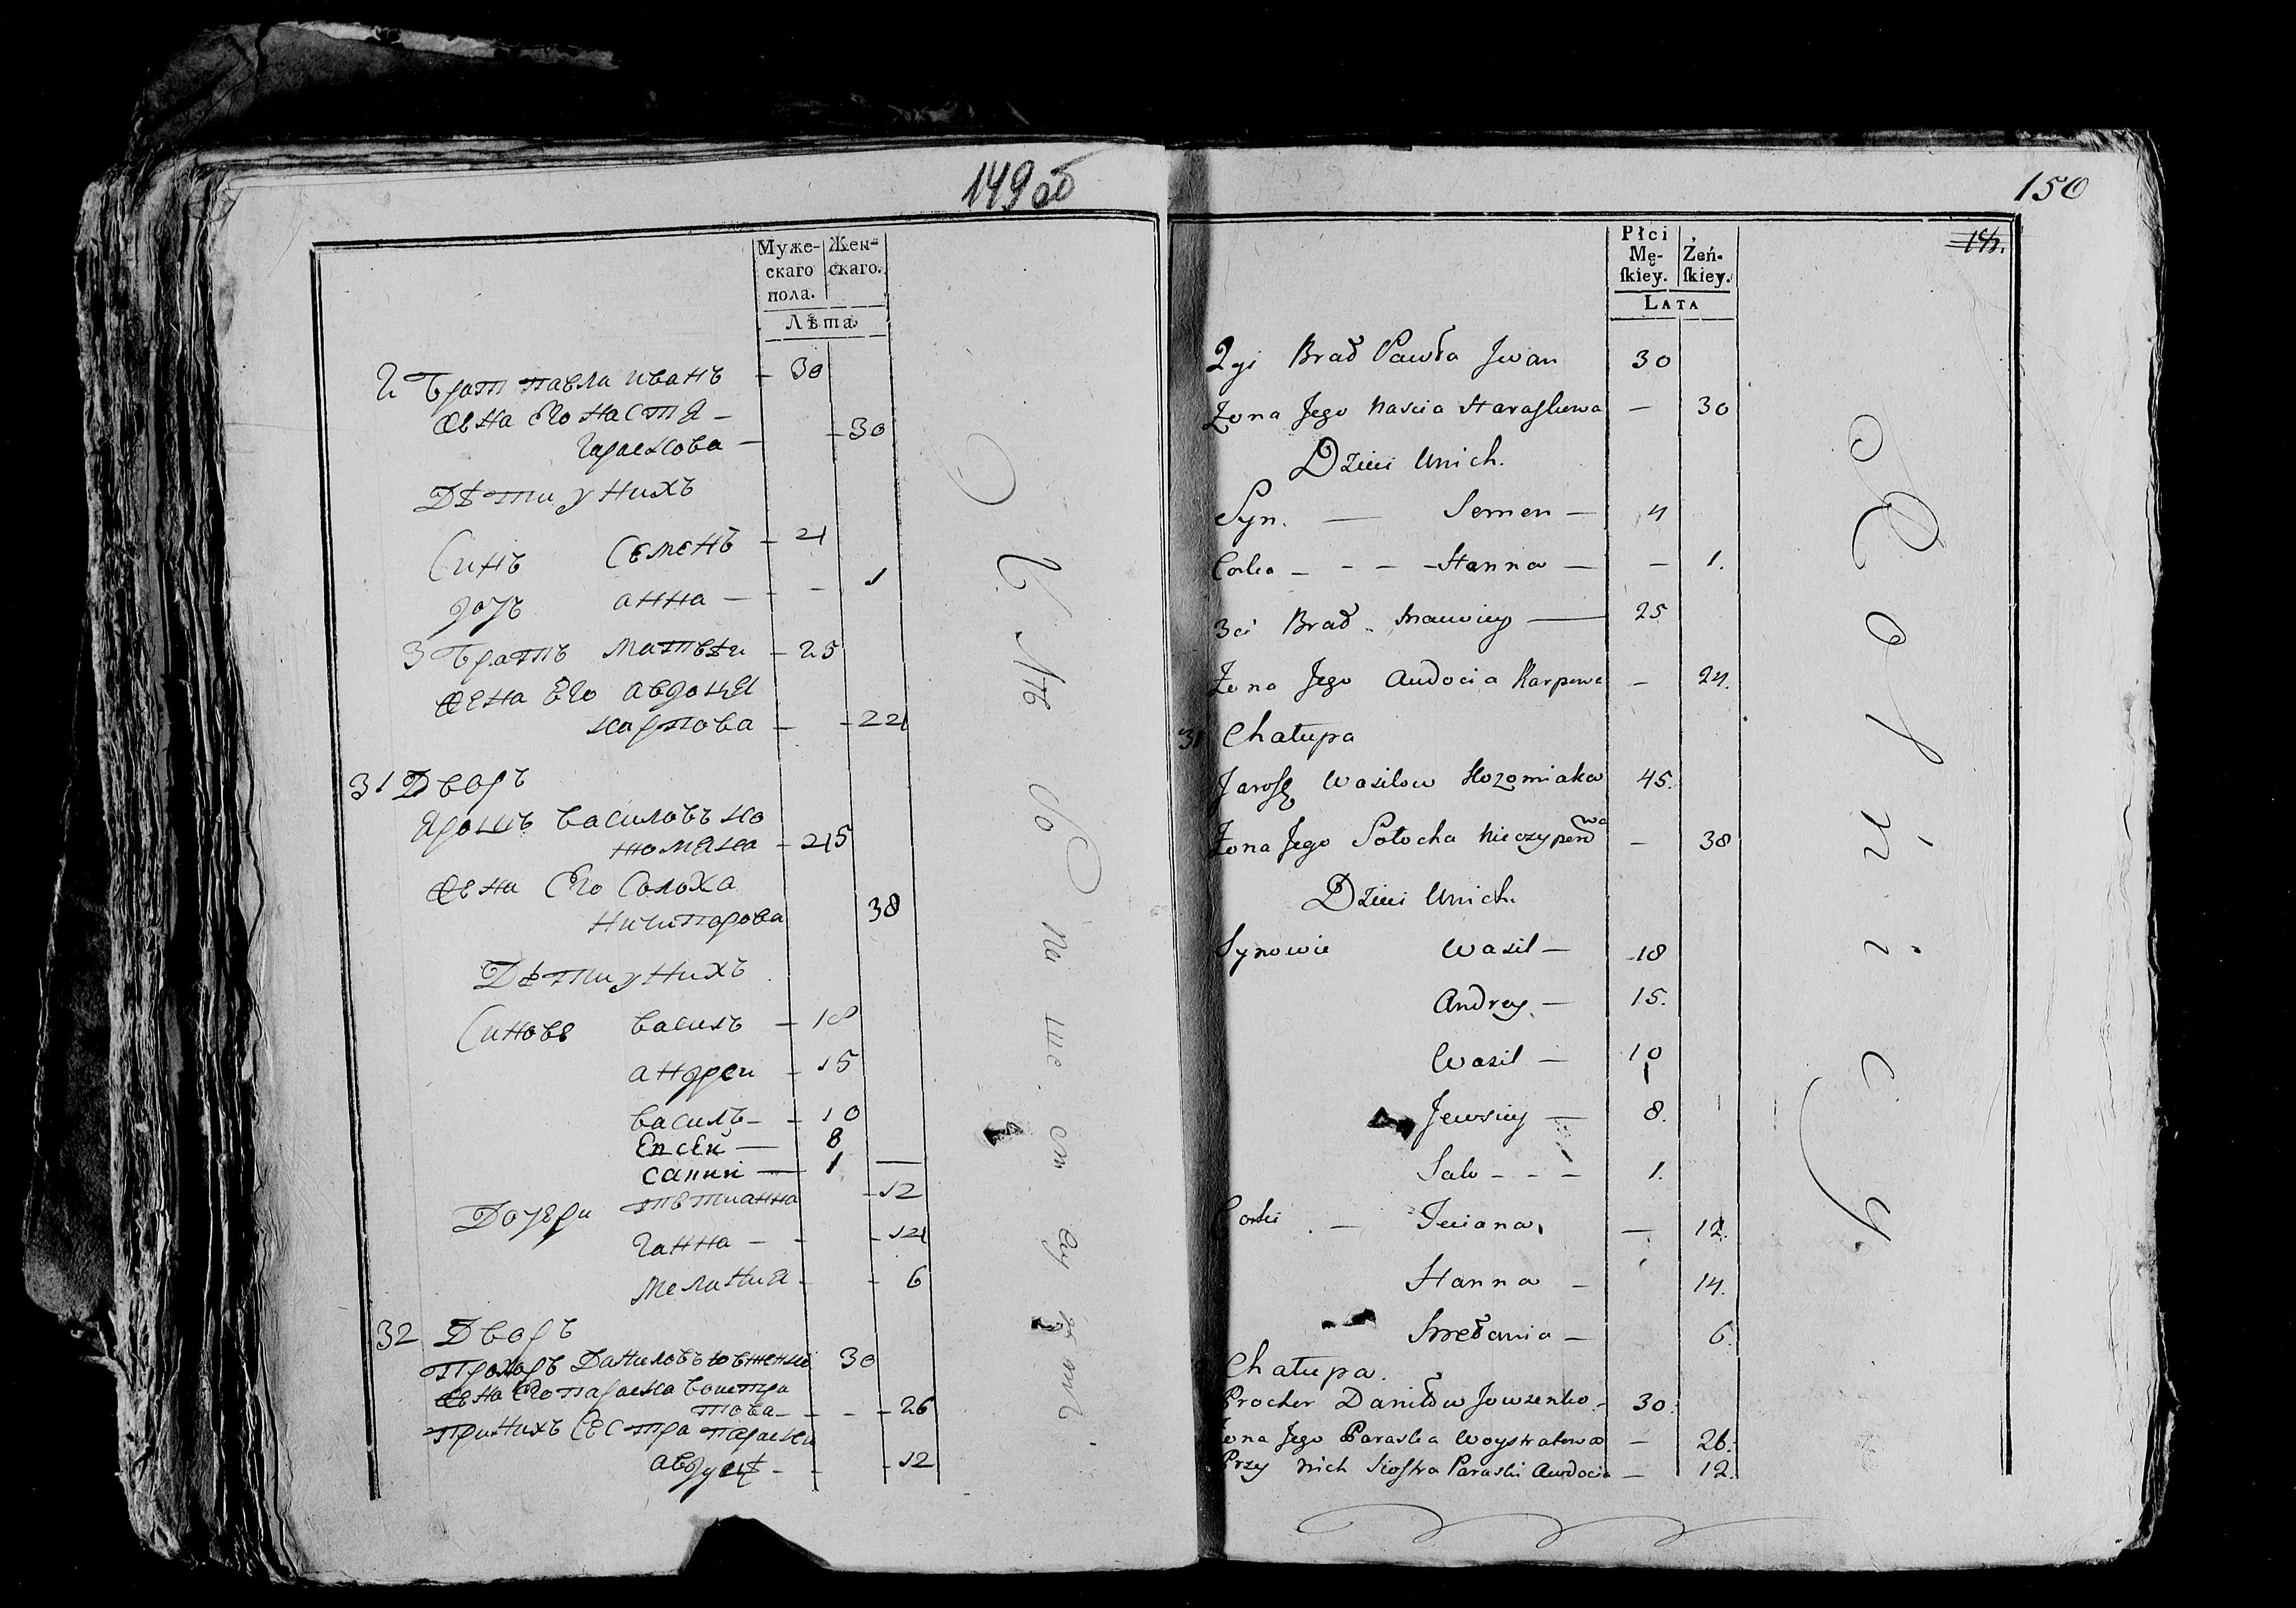 149 об
Муже-
скаго
пола.
Жен-
скаго.
Лѣта
2й Братъ павла иванъ — 30
Жена Его настя —
30
Дѣти у нихъ
Синъ Семенъ — 4
дочь анна — — 1
3 Братъ матвѣи — 25
Жена Его авдоця
карпова — — 24
31 Дворъ
Ярошъ василовъ ко
жомяка — 45
Жена Его Солоха
Ничипорова 38
Дѣти у нихъ
Синовѣ василь — 18
андреи — 15
василь — — 10
Евсей — 8
Савки — 1 —
Дочери тетианна — 12
ганна — — 14
меланиа — — 6
32 Дворъ
Прохоръ Даниловъ 30
Жена Его параска воистра
това — — — 26
при нихъ Сестра параски
авдуся — — — 12
150
Płci
Mę-
skiey.
Żeń-
skiey.
LATA
2gi Brat Pawła Jwan 30
Żona Jego Nascia — 30
Dzieci Unich.
Syn. — Semen — 4
Corka — — — Hanna — — 1.
3ci Brat — 25
Żona Jego Audocia Karpowa — 24.
31 Chałupa
Jarosz Wasilow 45.
Żona Jego Sołocha Nieczyporowa — 38
Dzieci Unich.
Synowie Wasil — 18
Andrey. — 15.
Wasil — 10
Jewsiey — 8.
Saw — — — 1.
Corki . — Teciana, — 12.
Hanna — 14.
Mełania — 6.
Chałupa.
Prochor Daniłow Jowzenko — 30.
Żona Jego Paraska Woystratowa — 26.
Przy nich Siostra Paraski Awdocia — 12.